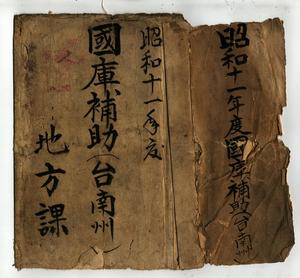 昭和十一年度國庫補助(台南州)
昭和十一年度
國庫補助(台南州)
地方課